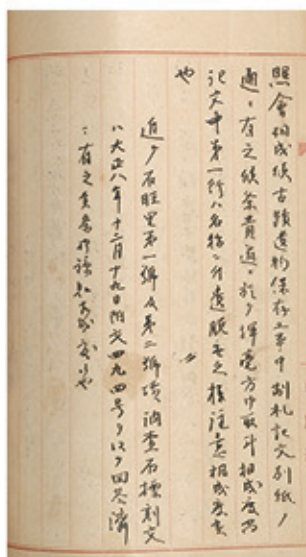 照會相成候古蹟遺物保存工事中制札記文別紙ノ
通ニ有之候条貴道ニ於テ揮毫方御取計相成度尚
記文中第一行ハ名称ニ付遺脱無之様注意相成度候
也
追テ石旺里第一號及第二號墳調査石標刻文
ハ大正八年十二月十九日附文四九四号ヲ以テ回答濟
ニ有之候条御諒知相成度候也